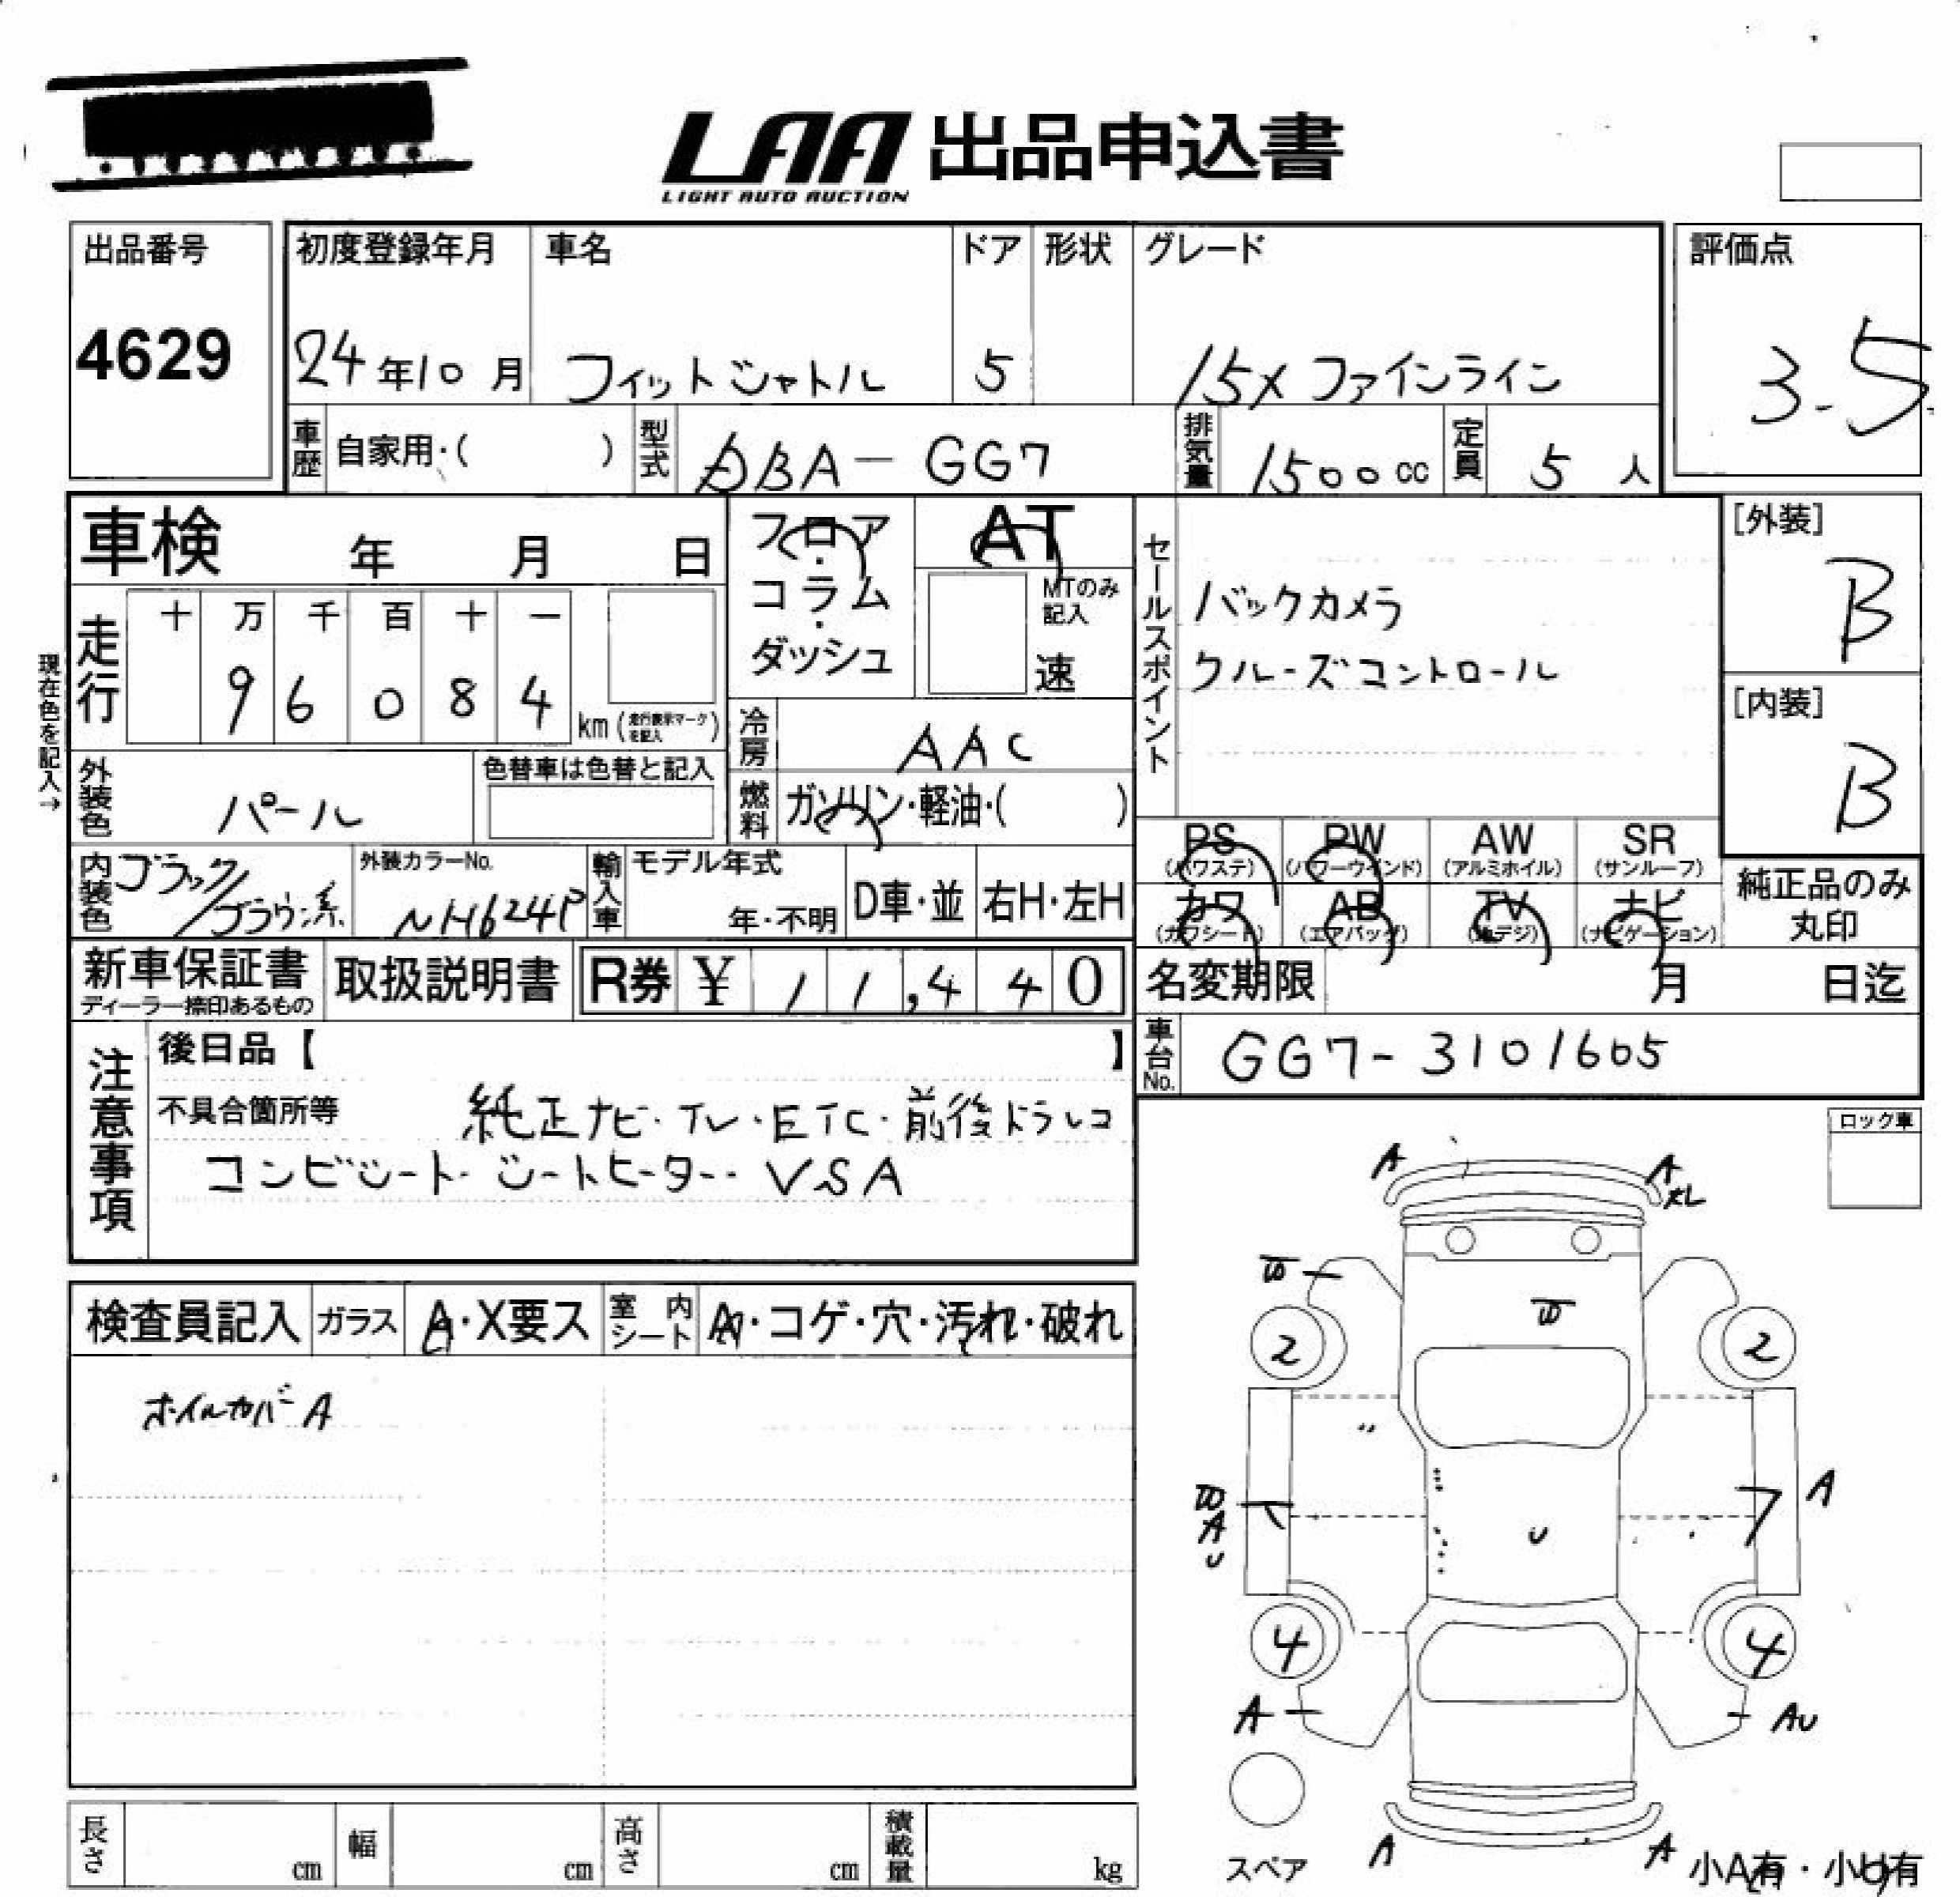 LAA 出品申込書
LIGHT AUTO AUCTION
出品番号
4629
初度登録年月
24年10月
車名
フィットシャトル
ドア
5
形状
グレード
15X ファインライン
評価点
3.5
車歴 自家用・( )
型式 DBA-GG7
排気量 1500cc
定員 5人
車検 年 月 日
フロア・コラム・ダッシュ
AT
MTのみ記入
速
セールスポイント
バックカメラ
クルーズコントロール
[外装]
B
[内装]
B
現在色を記入→
走行
十 万 千 百 十 一
9 6 0 8 4
km (走行表示マークを記入)
冷房 AAC
外装色 パール
色替車は色替と記入
燃料 ガソリン・軽油・( )
PS (パワステ)
PW (パワーウインド)
AW (アルミホイル)
SR (サンルーフ)
カワ (カワシート)
AB (エアバッグ)
TV (地デジ)
ナビ (ナビゲーション)
純正品のみ丸印
内装色 ブラック/ブラウン系
外装カラーNo.
NH624P
輸入車
モデル年式
年・不明
D車・並
右H・左H
新車保証書
ディーラー捺印あるもの
取扱説明書
R券 ¥ 11,440
名変期限 月 日迄
車台No. GG7-3101605
注意事項
後日品【 】
不具合箇所等 純正ナビ・TV・ETC・前後ドラレコ
コンビシート・シートヒーター・VSA
ロック車
検査員記入
ガラス A・X要ス
室内シート A・コゲ・穴・汚れ・破れ
ホイルカバーA
A
A
2
2
U
A
A
U
4
4
A
AU
A
A
スペア
小A有・小U有
長さ cm
幅 cm
高さ cm
積載量 kg